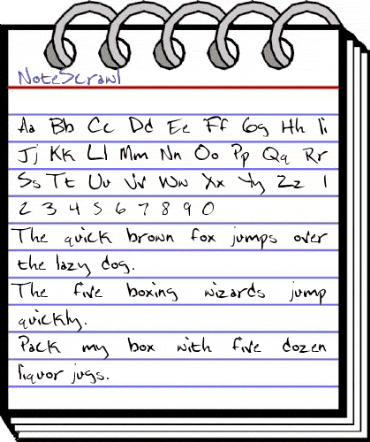 NoteScrawl
Aa Bb Cc Dd Ee Ff Gg Hh Ii
Jj Kk Ll Mm Nn Oo Pp Qq Rr
Ss Tt Uu Vv Ww Xx Yy Zz 1
2 3 4 5 6 7 8 9 0
The quick brown fox jumps over
the lazy dog.
The five boxing wizards jump
quickly.
Pack my box with five dozen
liquor jugs.